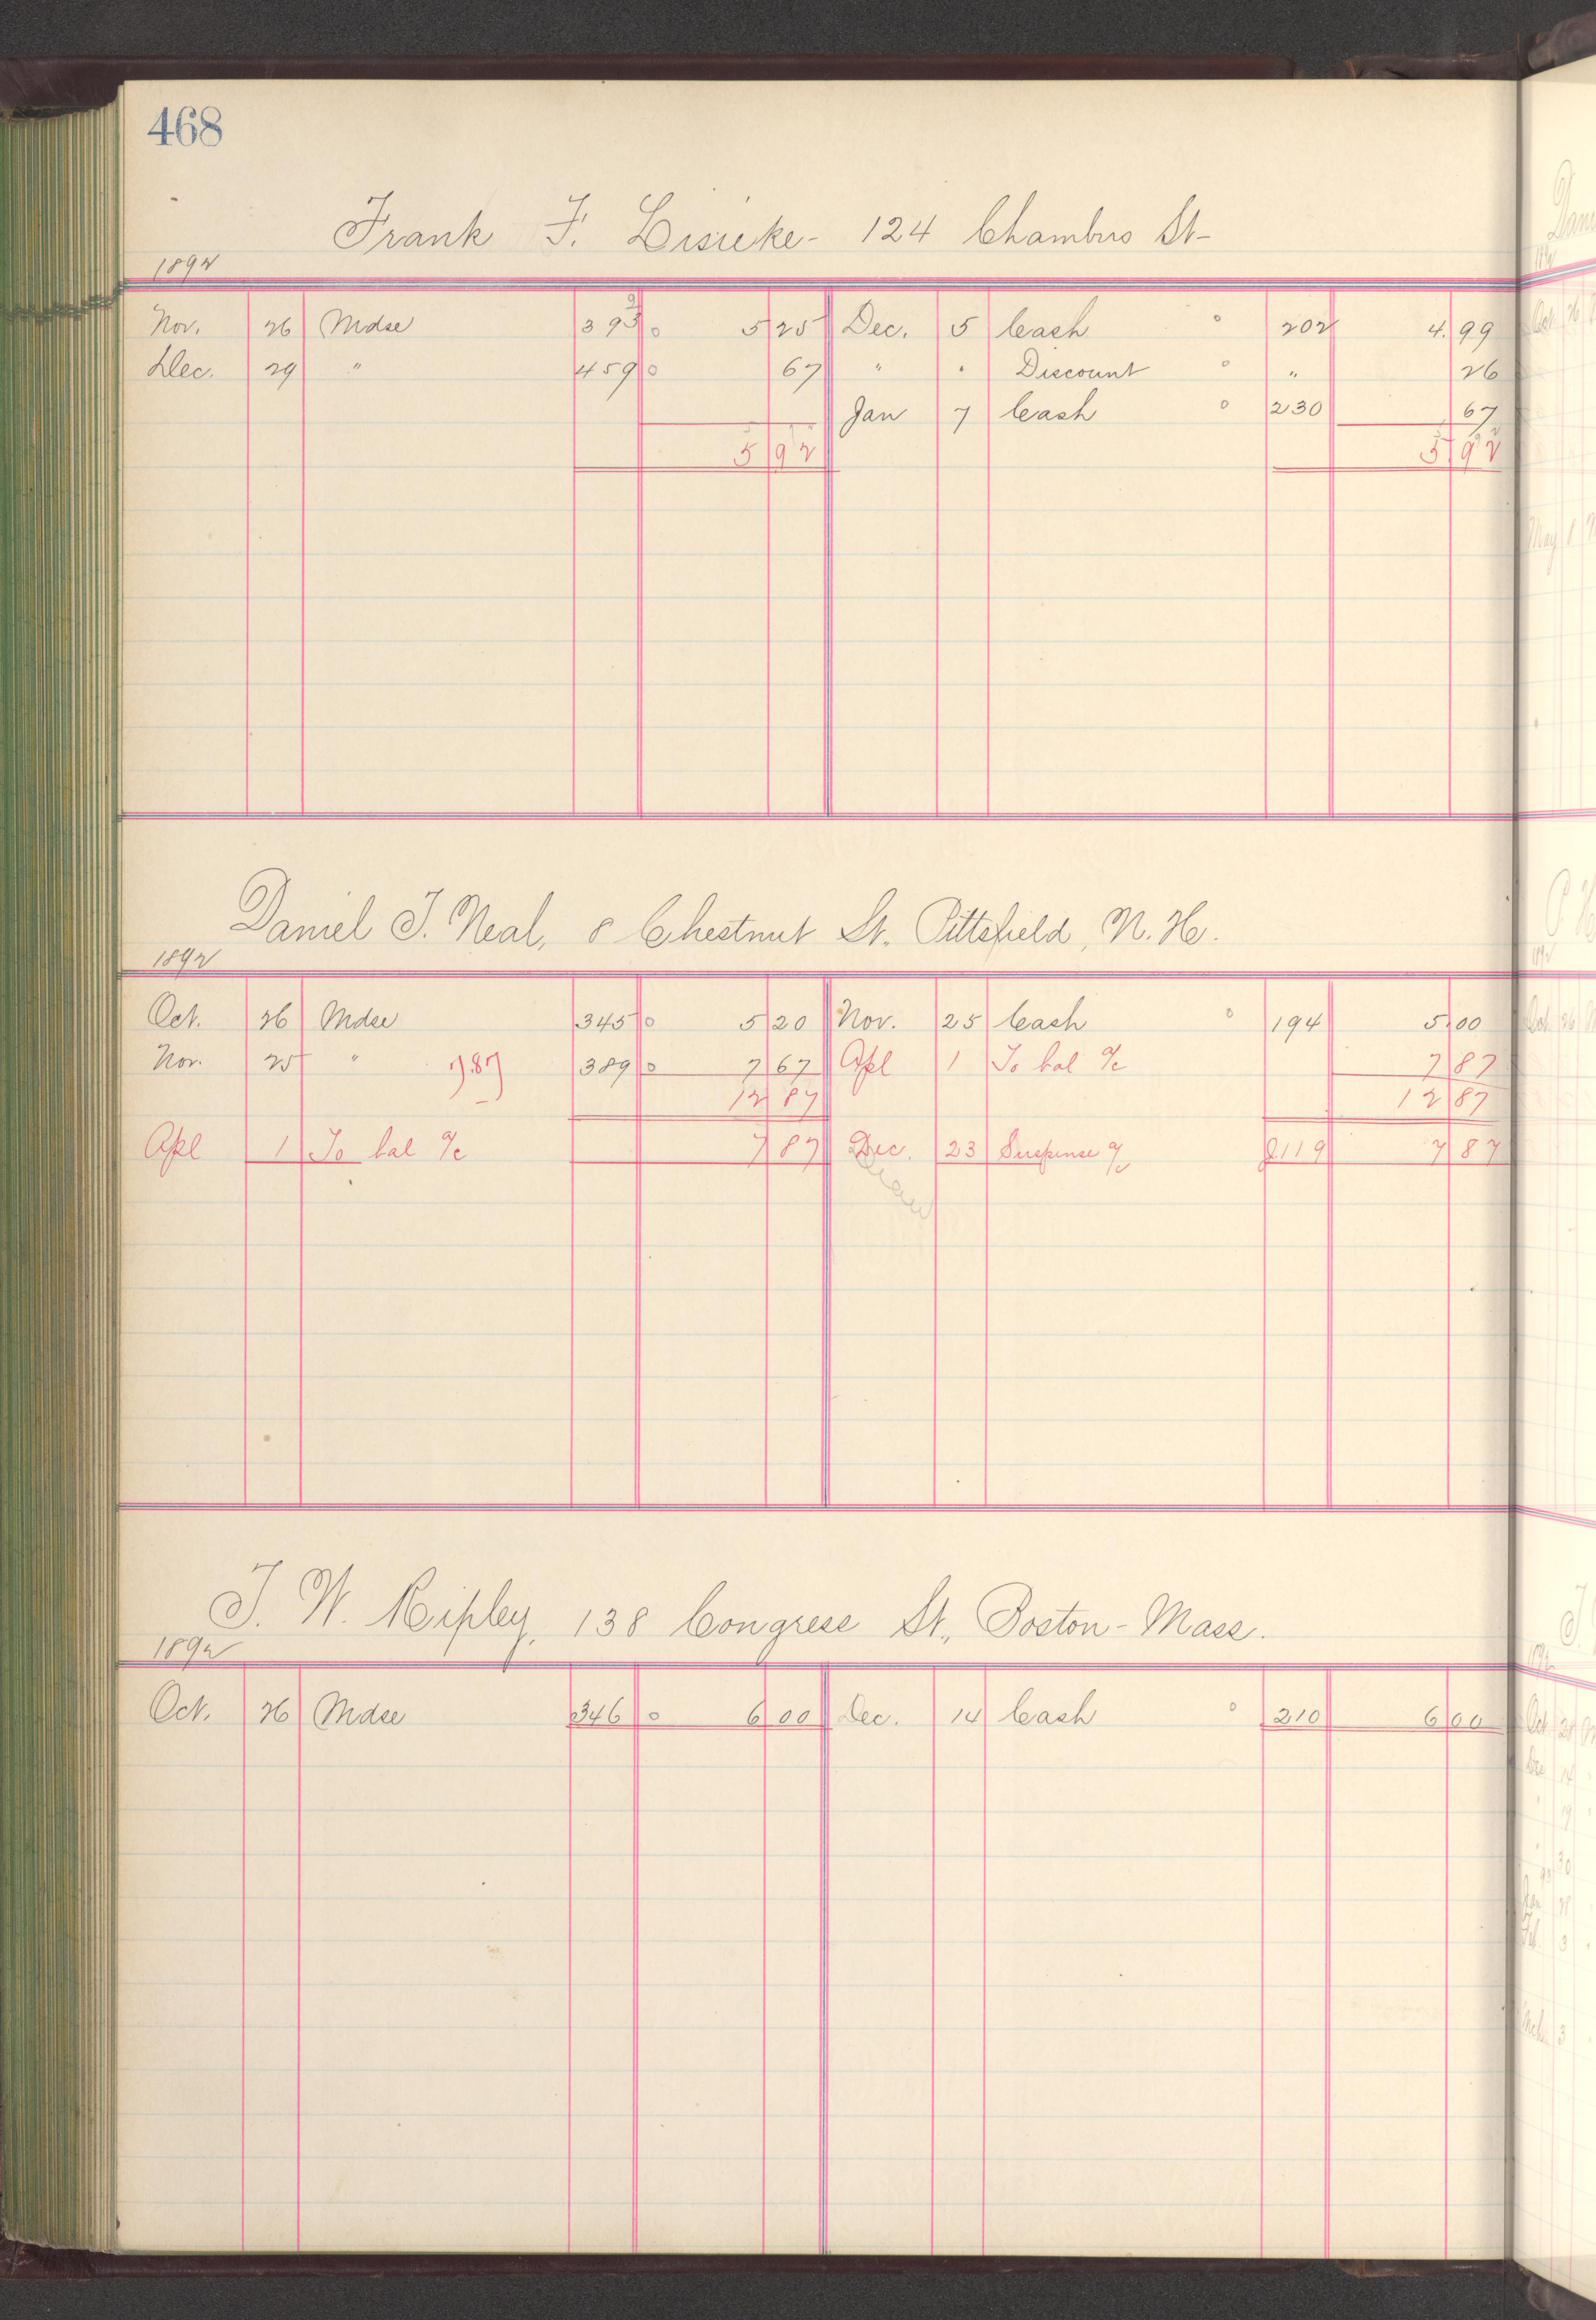 468
Frank F. Lisicke - 124 Chambers St -
1892
Nov. 26 Mdse 393 5 25 Dec. 5 Cash 202 4.99
Dec. 29 " 459 67 " " Discount " 26
Jan 7 Cash 230 67
5 92 5 92
Daniel J. Neal, 8 Chestnut St. Pittsfield, N. H.
1892
Oct. 26 Mdse 345 5 20 Nov. 25 Cash 194 5 00
Nov. 25 " 7 87 389 7 67 Apl 1 To bal a/c 7 87
12 87 12 87
Apl 1 To bal a/c 7 87 Dec. 23 Suspense a/c 2119 7 87
J. W. Ripley, 138 Congress St., Boston - Mass.
1892
Oct. 26 Mdse 346 6 00 Dec. 14 Cash 210 6 00